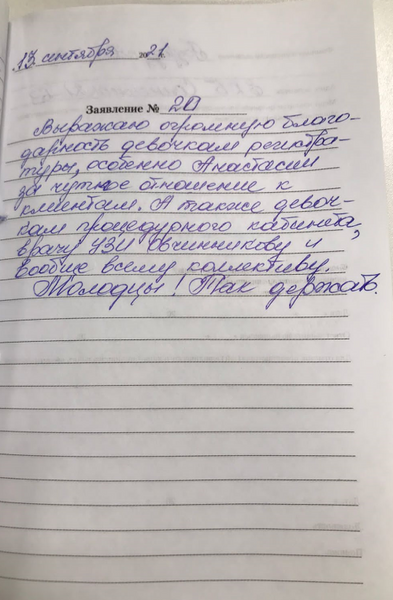 13 сентября 2021.
Заявление № 20
Выражаю огромную благо-
дарность девочкам регистра-
туры, особенно Анастасии
за чуткое отношение к
клиентам. А также девоч-
кам процедурного кабинета,
врачу УЗИ Овчинникову и
вообще всему коллективу.
Молодцы! Так держать.